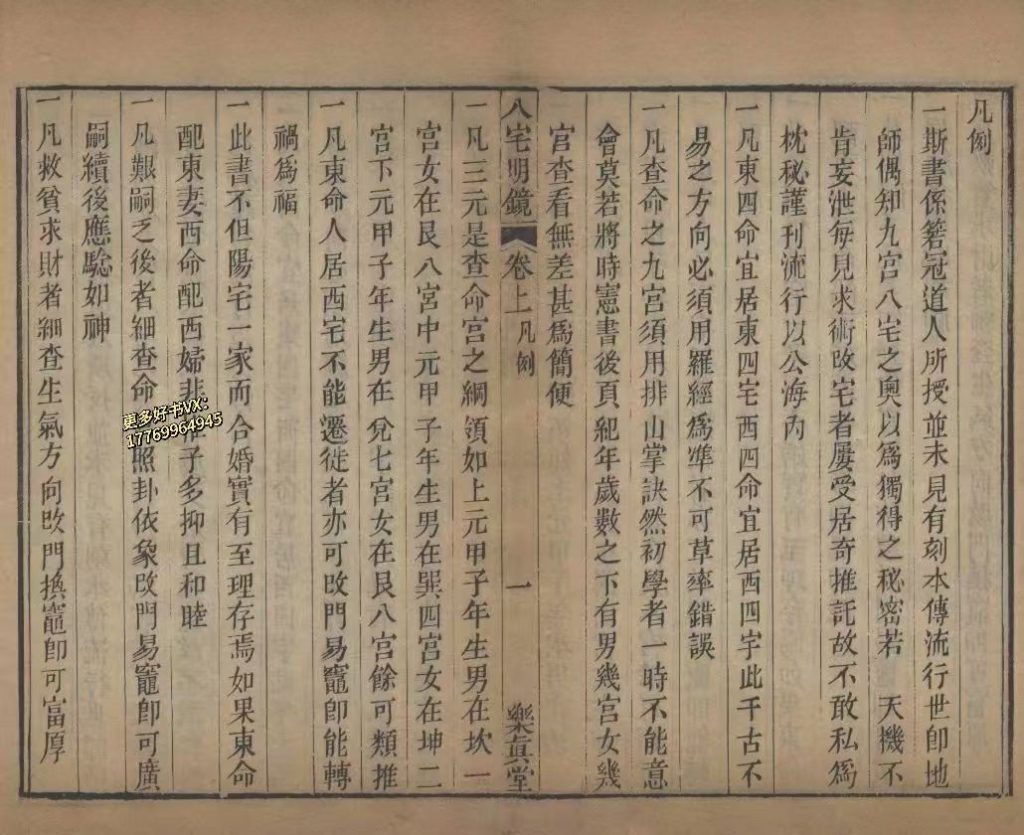 凡例
一斯書係箬冠道人所授並未見有刻本傳流行世卽地
師偶知九宮八宅之奧以爲獨得之秘密若 天機不
肯妄泄每見求術改宅者屢受居奇推託故不敢私爲
枕秘謹刊流行以公海內
一凡東四命宜居東四宅西四命宜居西四宇此千古不
易之方向必須用羅經爲準不可草率錯誤
一凡查命之九宮須用排山掌訣然初學者一時不能意
會莫若將時憲書後頁紀年歲數之下有男幾宮女幾
宮查看無差甚爲簡便
八宅明鏡 卷上 凡例 一 樂眞堂
一凡三元是查命宮之綱領如上元甲子年生男在坎一
宮女在艮八宮中元甲子年生男在巽四宮女在坤二
宮下元甲子年生男在兌七宮女在艮八宮餘可類推
一凡東命人居西宅不能遷徙者亦可改門易竈卽能轉
禍爲福
一此書不但陽宅一家而合婚實有至理存焉如果東命
配東妻西命配西婦非子多抑且和睦
一凡艱嗣乏後者細查命照卦依象改門易竈卽可廣
嗣續後應驗如神
一凡救貧求財者細查生氣方向改門換竈卽可富厚
更多好书VX:
17769964945